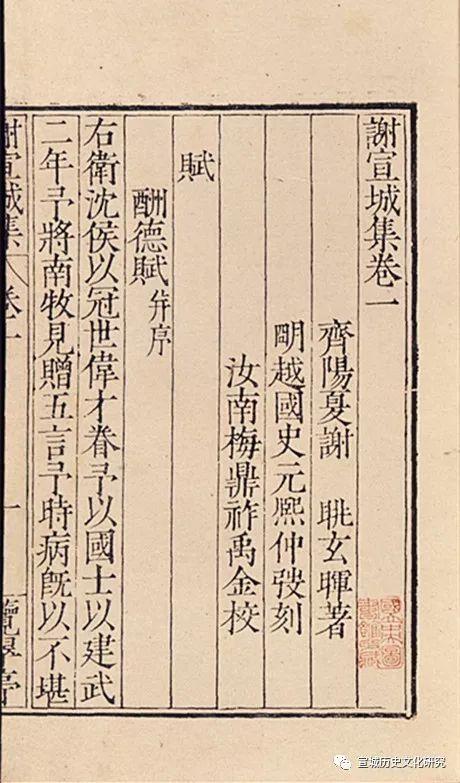 謝宣城集卷一
齊陽夏謝 眺玄暉著
明越國史元熙仲弢刻
汝南梅鼎祚禹金校
賦
酬德賦并序
右衛沈侯以冠世偉才眷予以國士以建武
二年予將南牧見贈五言予時病旣以不堪
謝宣城集 卷一 一 覽翠亭
宣城历史文化研究